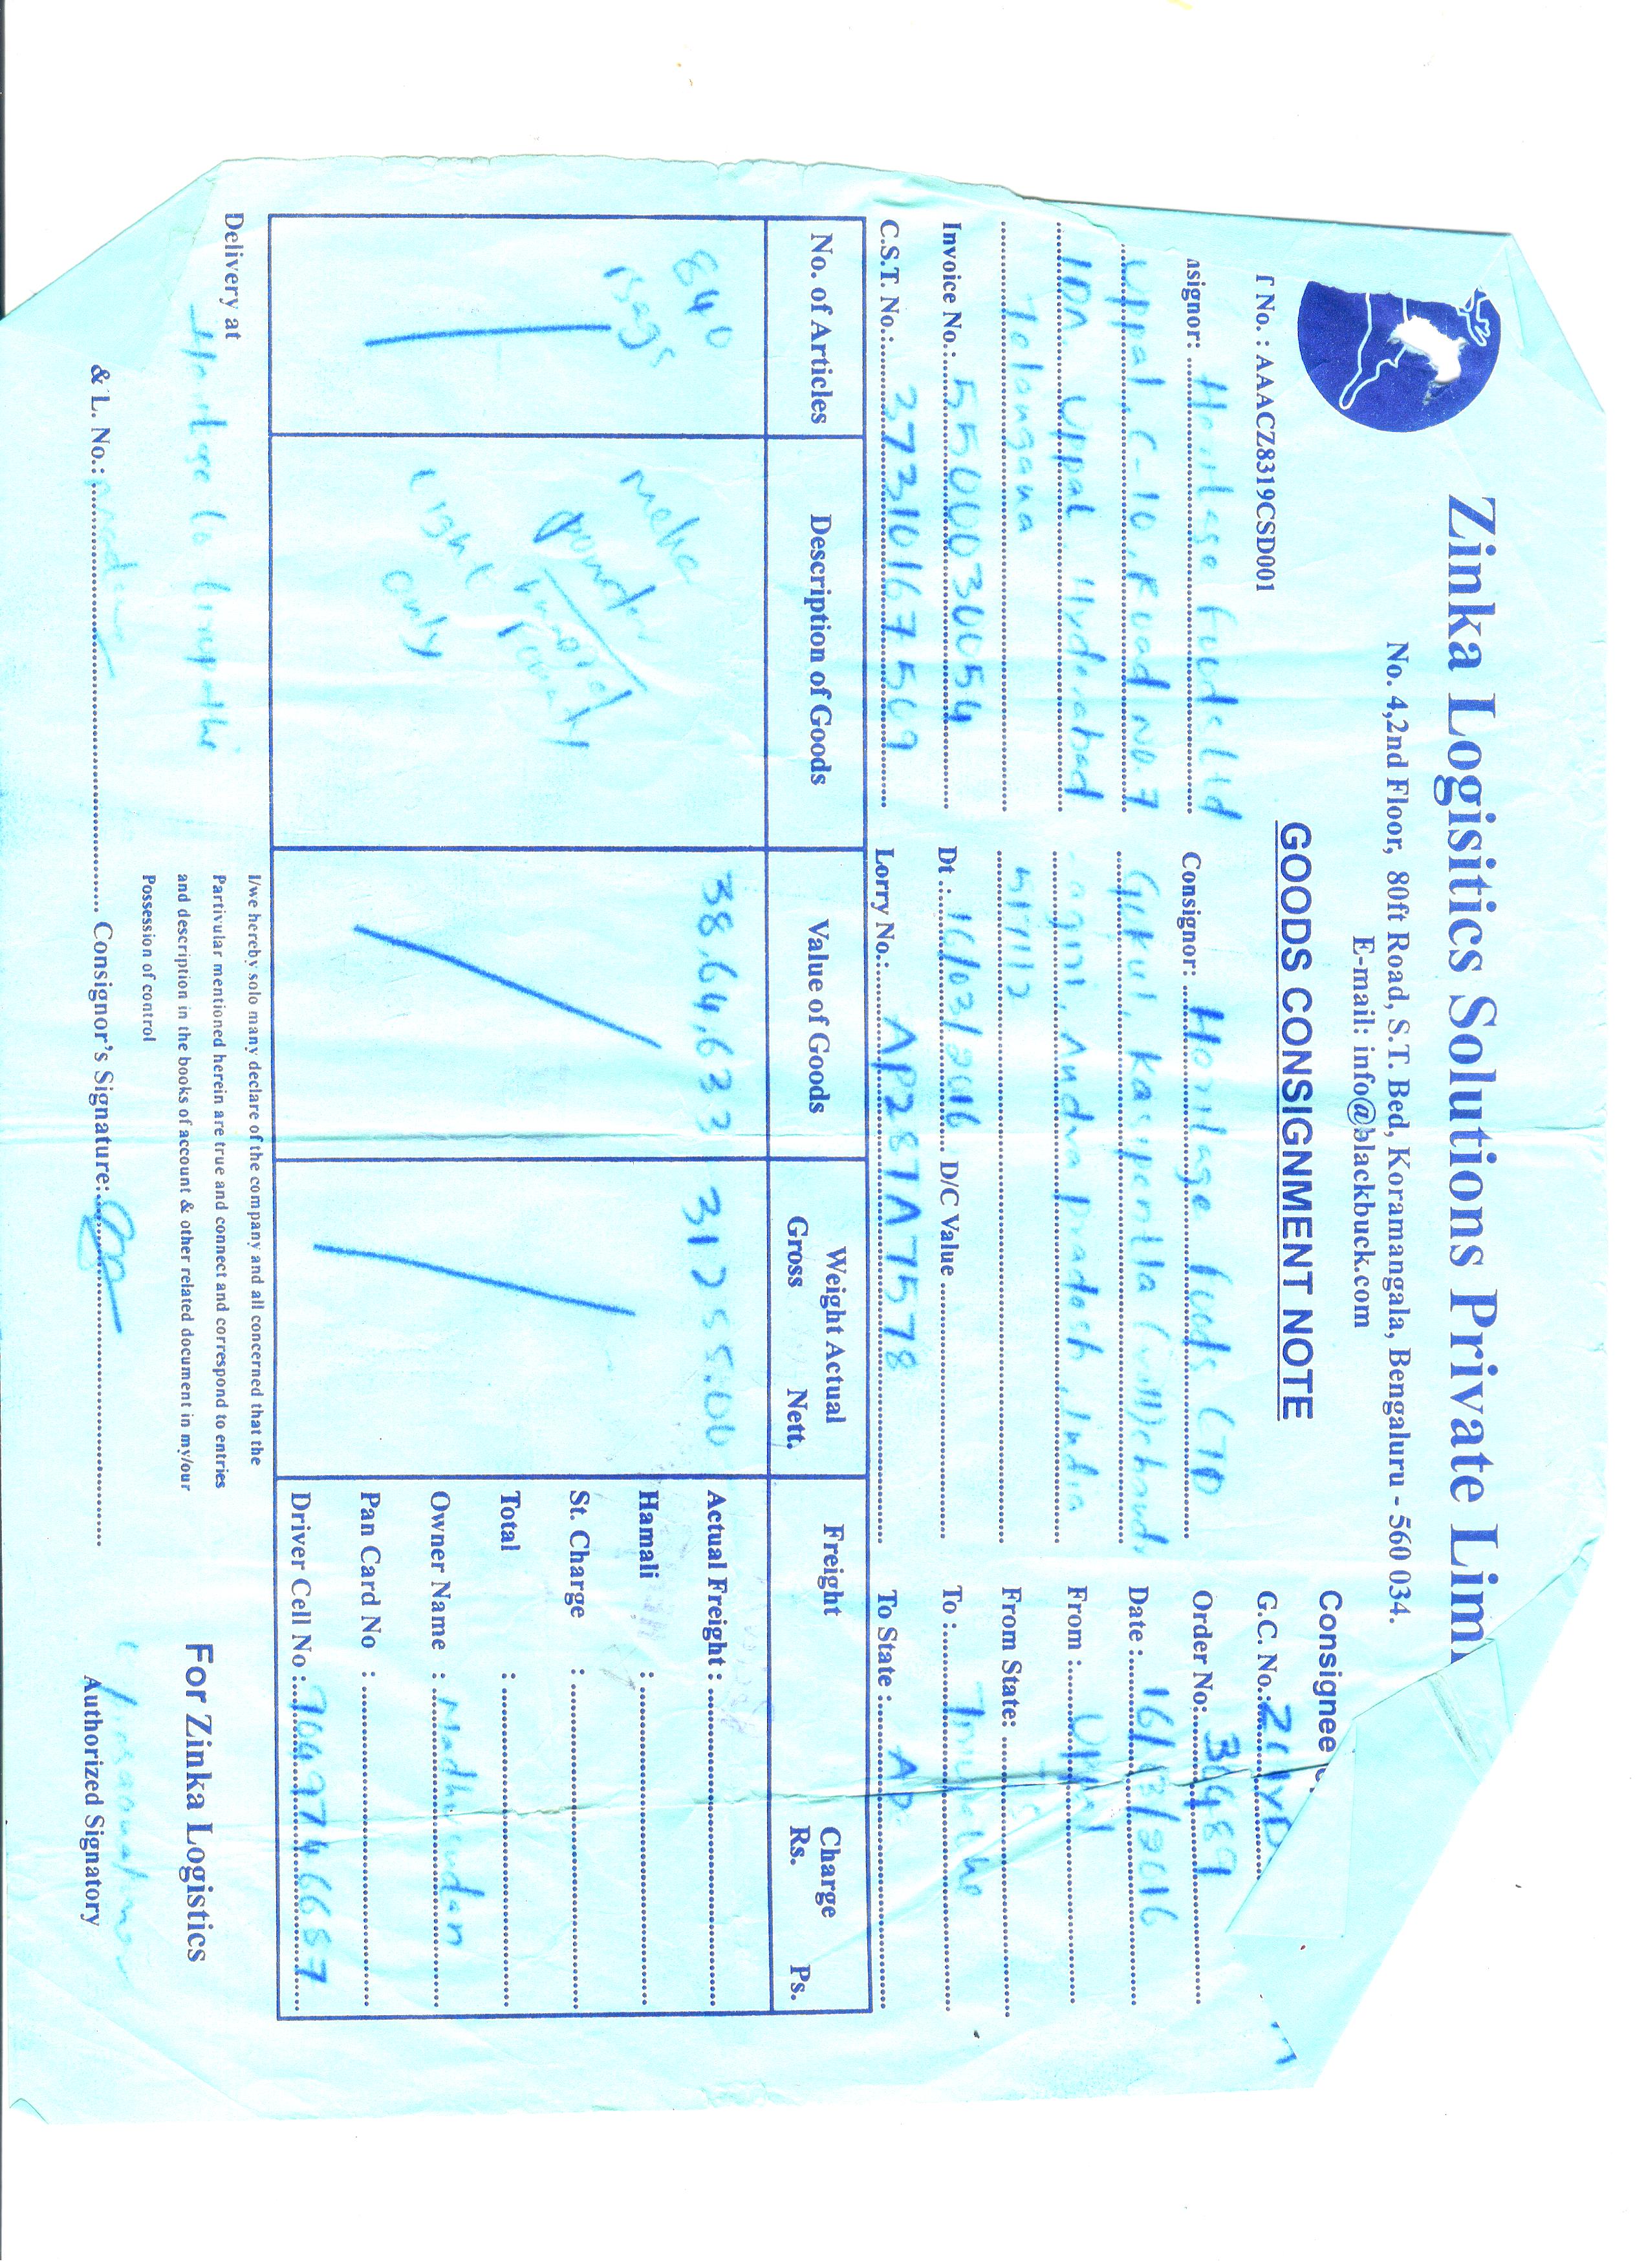 Zinka Logisitics Solutions Private Lim
No. 4,2nd Floor, 80ft Road, S.T. Bed, Koramangala, Bengaluru - 560 034.
E-mail: info@blackbuck.com
Consignee
T No. : AAACZ8319CSD001
GOODS CONSIGNMENT NOTE
G.C. No.:
nsignor: Heritage foods Ltd
Uppal, C-10, Road No. 7
IDA, Uppal, Hyderabad
Telangana
Invoice No.: 5500030054
C.S.T. No.: 37310167569
Consignor: Heritage foods LTD
Gokul, Kasipentla (vill) chand
agiri, Andra pradesh, India
517112
Dt 16/03/2016 D/C Value
Lorry No.: AP28TA7578
Order No: 30489
Date : 16/03/2016
From : Uppal
From State: TS
To :
To State : AP
No. of Articles
Description of Goods
Value of Goods
Weight Actual
Gross Nett.
Freight
Charge
Rs. Ps.
840
Bags
powder
Light
only
38,64,633
31255.00
Actual Freight :
Hamali :
St. Charge :
Total :
Owner Name : Madhusudan
Pan Card No :
Driver Cell No : 7049746687
Delivery at
I/we hereby solo many declare of the company and all concerned that the
Partivular mentioned herein are true and connect and correspond to entries
and description in the books of account & other related document in my/our
Possession of control
For Zinka Logistics
& L. No.:
Consignor's Signature:
Authorized Signatory